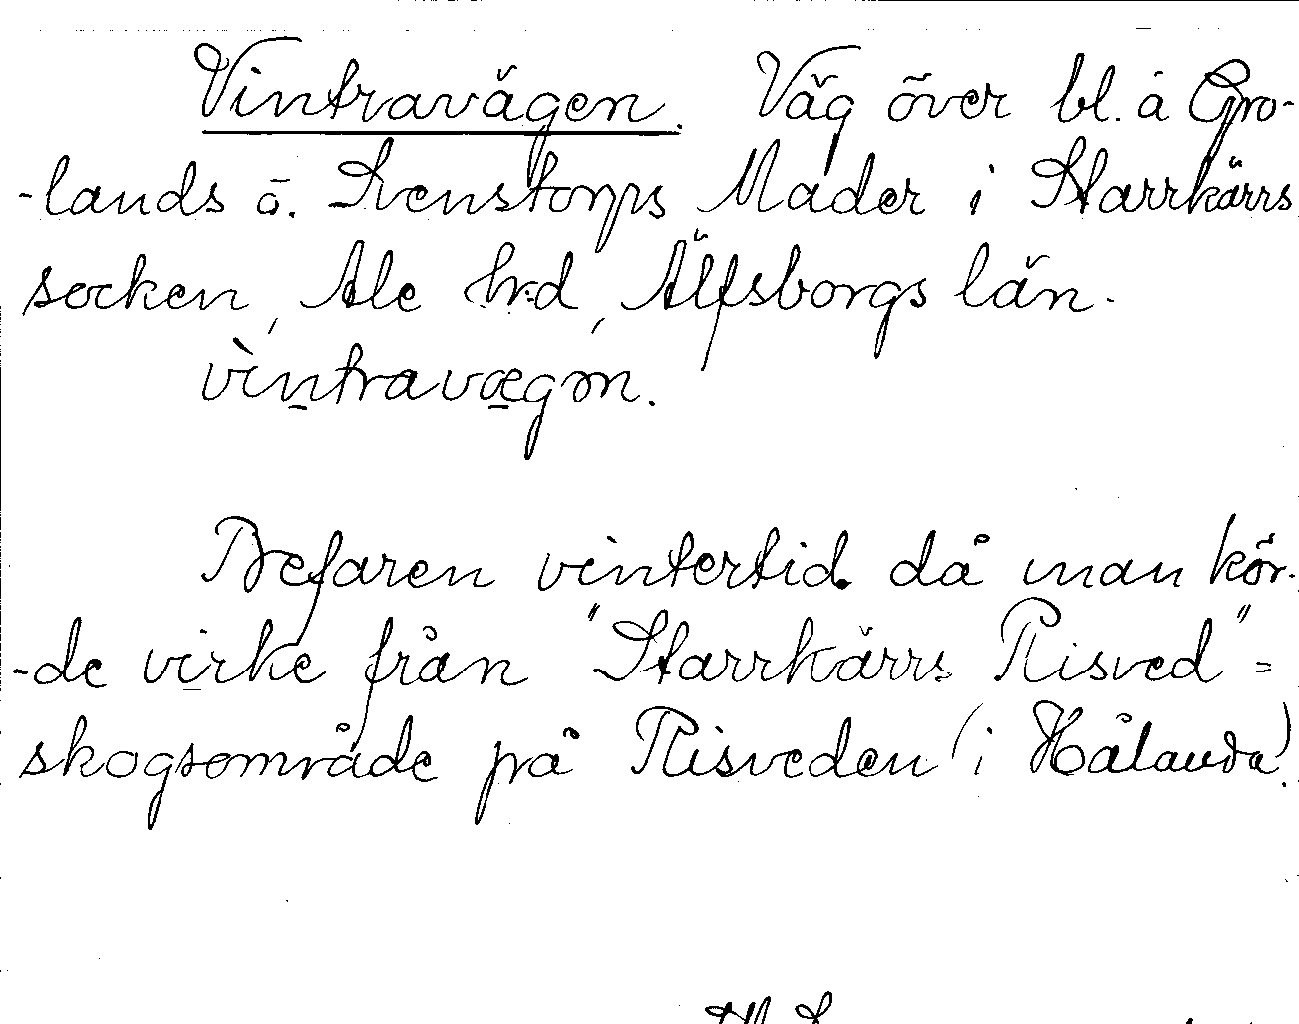 Vintravägen. Väg över bl. å Gro-
-lands o. Svenstorps Mader i Starrkärrs
socken, Ale hrd, Älfsborgs län.
vìntravægən.
Befaren vintertid då man kör-
-de virke från "Starrkärrs Risved" =
skogsområde på Risveden (i Hålanda).